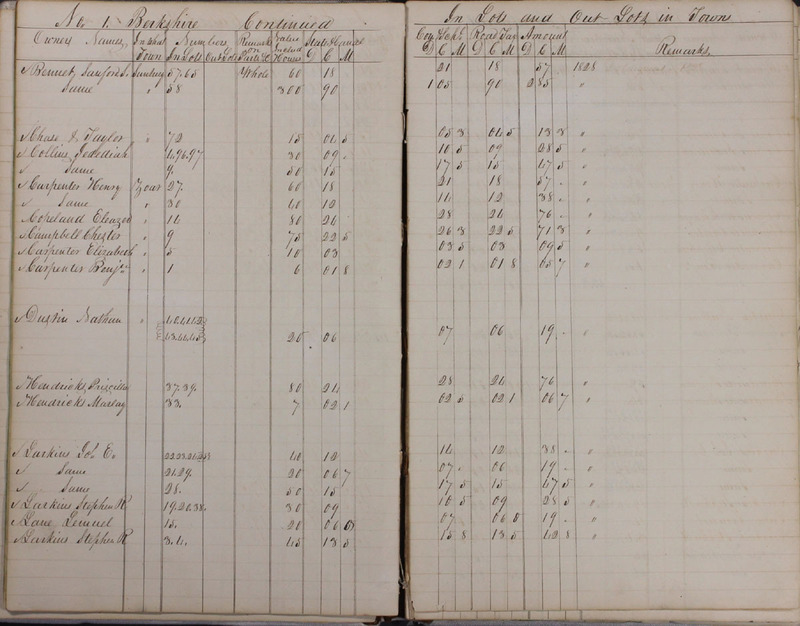 No. 1. Berkshire Continued
In Lots and Out Lots in Town
Owners Names In What Numbers Remarks Value State & Canal
Town In Lots Out Lots Houses D C M
Coy & Schl Road Tax Amount
D C M D C M D C M Remarks
Bennet, Sanford S. Sunbury 57.65 Whole 60 18 21 18 57 1828
Same " 58 300 90 1 05 90 2 85 "
Chase & Taylor " 72 15 04 5 05 3 04 5 13 8 "
Collins Jedediah 96.97 30 09 10 5 09 28 5 "
Same 50 15 17 5 15 47 5 "
Carpenter Henry Zoar 27. 60 18 21 18 57 "
Same " 30 40 12 14 12 38 "
Copeland Eleazor " 14 80 24 28 24 76 "
Campbell Chester " 9 75 22 5 26 3 22 5 71 3 "
Carpenter Elizabeth " 5 10 03 03 5 03 09 5 "
Carpenter Benj. " 1 6 01 8 02 1 01 8 05 7 "
Dustin Nathan " 40.41.42
43.44.45 20 06 07 06 19 "
Hendricks Priscilla 37.39. 80 24 28 24 76 "
Hendricks 33. 7 02 1 02 5 02 1 06 7 "
Larkins Jo. E. 40 12 14 12 38 "
Same 20 06 07 06 19 "
Same 28. 50 15 17 5 15 47 5 "
Larkins Stephen R 19.20.38. 30 09 10 5 09 28 5 "
Lane Lemuel 15. 20 06 07 06 0 19 "
Larkins Stephen R 3.4. 45 13 5 15 8 13 5 42 8 "